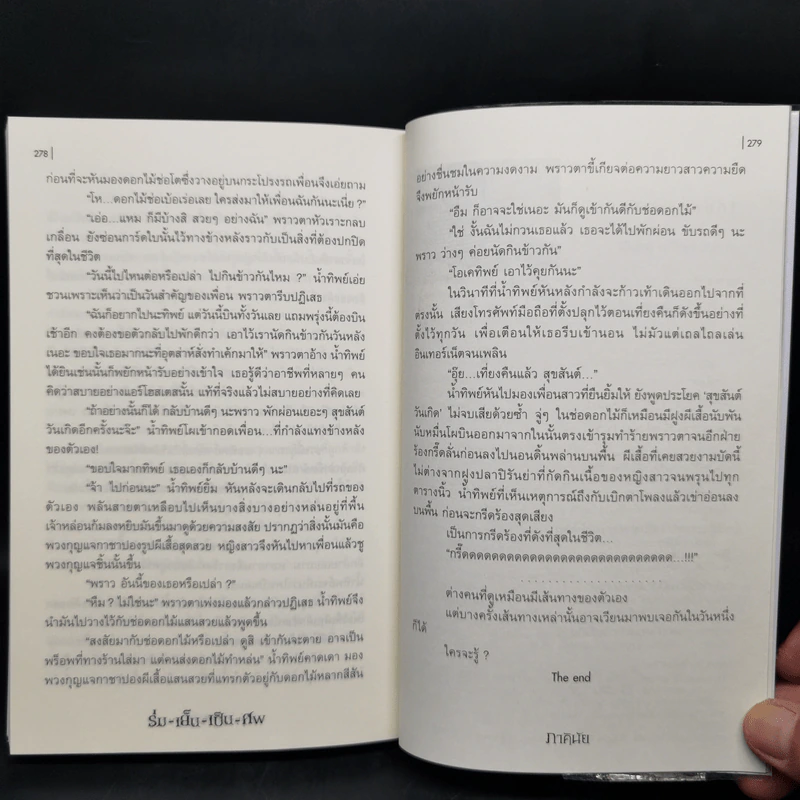 278
ก่อนที่จะหันมองดอกไม้ช่อโตซึ่งวางอยู่บนกระโปรงรถเพื่อนจึงเอ่ยถาม
“โห...ดอกไม้ช่อเบ้อเร่อเลย ใครส่งมาให้เพื่อนฉันกันนะเนี่ย ?”
“เอ่อ...แหม ก็มีบ้างสิ สวยๆ อย่างฉัน” พราวตาหัวเราะกลบ
เกลื่อน ยังซ่อนการ์ดใบนั้นไว้ทางข้างหลังราวกับเป็นสิ่งที่ต้องปกปิด
ที่สุดในชีวิต
“วันนี้ไปไหนต่อหรือเปล่า ไปกินข้าวกันไหม ?” น้ำทิพย์เอ่ย
ชวนเพราะเห็นว่าเป็นวันสำคัญของเพื่อน พราวตารีบปฏิเสธ
“ฉันก็อยากไปนะทิพย์ แต่วันนี้บินทั้งวันเลย แถมพรุ่งนี้ต้องบิน
เช้าอีก คงต้องขอตัวกลับไปพักดีกว่า เอาไว้เรานัดกินข้าวกันวันหลัง
เนอะ ขอบใจเธอมากนะที่อุตส่าห์สั่งทำเค้กมาให้” พราวตาอ้าง น้ำทิพย์
ได้ยินเช่นนั้นก็พยักหน้ารับอย่างเข้าใจ เธอรู้ดีว่าอาชีพที่หลายๆ คน
คิดว่าสบายอย่างแอร์โฮสเตสนั้น แท้ที่จริงแล้วไม่สบายอย่างที่คิดเลย
“ถ้าอย่างนั้นก็ได้ กลับบ้านดีๆ นะพราว พักผ่อนเยอะๆ สุขสันต์
วันเกิดอีกครั้งนะจ๊ะ” น้ำทิพย์โผเข้ากอดเพื่อน...ที่กำลังแทงข้างหลัง
ของตัวเอง!
“ขอบใจมากทิพย์ เธอเองก็กลับบ้านดีๆ นะ”
“จ้า ไปก่อนนะ” น้ำทิพย์ยิ้ม หันหลังจะเดินกลับไปที่รถของ
ตัวเอง พลันสายตาเหลือบไปเห็นบางสิ่งบางอย่างหล่นอยู่ที่พื้น
เจ้าหล่อนก้มลงหยิบมันขึ้นมาดูด้วยความสงสัย ปรากฏว่าสิ่งนั้นมันคือ
พวงกุญแจกาชาปองรูปผีเสื้อสุดสวย หญิงสาวจึงหันไปหาเพื่อนแล้วชู
พวงกุญแจชิ้นนั้นขึ้น
“พราว อันนี้ของเธอหรือเปล่า ?”
“หืม ? ไม่ใช่นะ” พราวตาเพ่งมองแล้วกล่าวปฏิเสธ น้ำทิพย์จึง
นำมันไปวางไว้กับช่อดอกไม้แสนสวยแล้วพูดขึ้น
“สงสัยมากับช่อดอกไม้หรือเปล่า ดูสิ เข้ากันจะตาย อาจเป็น
พร็อพที่ทางร้านใส่มา แต่คนส่งดอกไม้ทำหล่น” น้ำทิพย์คาดเดา มอง
พวงกุญแจกาชาปองผีเสื้อแสนสวยที่แทรกตัวอยู่กับดอกไม้หลากสีสัน
ร่ม-เย็น-เป็น-ศพ
279
อย่างชื่นชมในความงดงาม พราวตาขี้เกียจต่อความยาวสาวความยืด
จึงพยักหน้ารับ
“อืม ก็อาจจะใช่เนอะ มันก็ดูเข้ากันดีกับช่อดอกไม้”
“ใช่ งั้นฉันไม่กวนเธอแล้ว เธอจะได้ไปพักผ่อน ขับรถดีๆ นะ
พราว ว่างๆ ค่อยนัดกินข้าวกัน”
“โอเคทิพย์ เอาไว้คุยกันนะ”
ในวินาทีที่น้ำทิพย์หันหลังกำลังจะก้าวเท้าเดินออกไปจากที่
ตรงนั้น เสียงโทรศัพท์มือถือที่ตั้งปลุกไว้ตอนเที่ยงคืนก็ดังขึ้นอย่างที่
ตั้งไว้ทุกวัน เพื่อเตือนให้เธอรีบเข้านอน ไม่มัวแต่เถลไถลเล่น
อินเทอร์เน็ตจนเพลิน
“อุ๊ย...เที่ยงคืนแล้ว สุขสันต์...”
น้ำทิพย์หันไปมองเพื่อนสาวที่ยืนยิ้มให้ ยังพูดประโยค ‘สุขสันต์
วันเกิด’ ไม่จบเสียด้วยซ้ำ จู่ๆ ในช่อดอกไม้ก็เหมือนมีฝูงผีเสื้อนับพัน
นับหมื่นโผบินออกมาจากในนั้นตรงเข้ารุมทำร้ายพราวตาจนอีกฝ่าย
ร้องกรี๊ดลั่นก่อนลงไปนอนดิ้นพล่านบนพื้น ผีเสื้อที่เคยสวยงามบัดนี้
ไม่ต่างจากฝูงปลาปิรันย่าที่กัดกินเนื้อของหญิงสาวจนพรุนไปทุก
ตารางนิ้ว น้ำทิพย์ที่เห็นเหตุการณ์ถึงกับเบิกตาโพลงแล้วเข่าอ่อนลง
บนพื้น ก่อนจะกรีดร้องสุดเสียง
เป็นการกรีดร้องที่ดังที่สุดในชีวิต...
“กรี๊ดดดดดดดดดดดดดดดดดดดดดดดดดดดดด...!!!”
. . . . . . . . . . . . . . . . . . . .
ต่างคนที่ดูเหมือนมีเส้นทางของตัวเอง
แต่บางครั้งเส้นทางเหล่านั้นอาจเวียนมาพบเจอกันในวันหนึ่ง
ก็ได้
ใครจะรู้ ?
The end
ภาคินัย